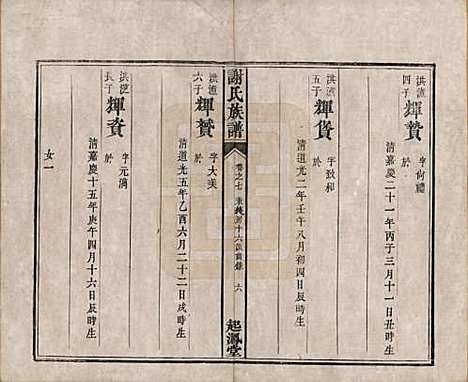 洪進四子輝贄 字尚禮
於
清嘉慶二十一年丙子三月十一日丑時生
洪進五子輝貨 字致和
於
清道光二年壬午八月初四日辰時生
謝氏族譜
卷之七
十六
六
起鳳堂
洪進六子輝贊 字大美
於
清道光五年乙酉六月二十二日戌時生
長子輝資 字元滿
於
清嘉慶十五年庚午四月十六日辰時生
女一